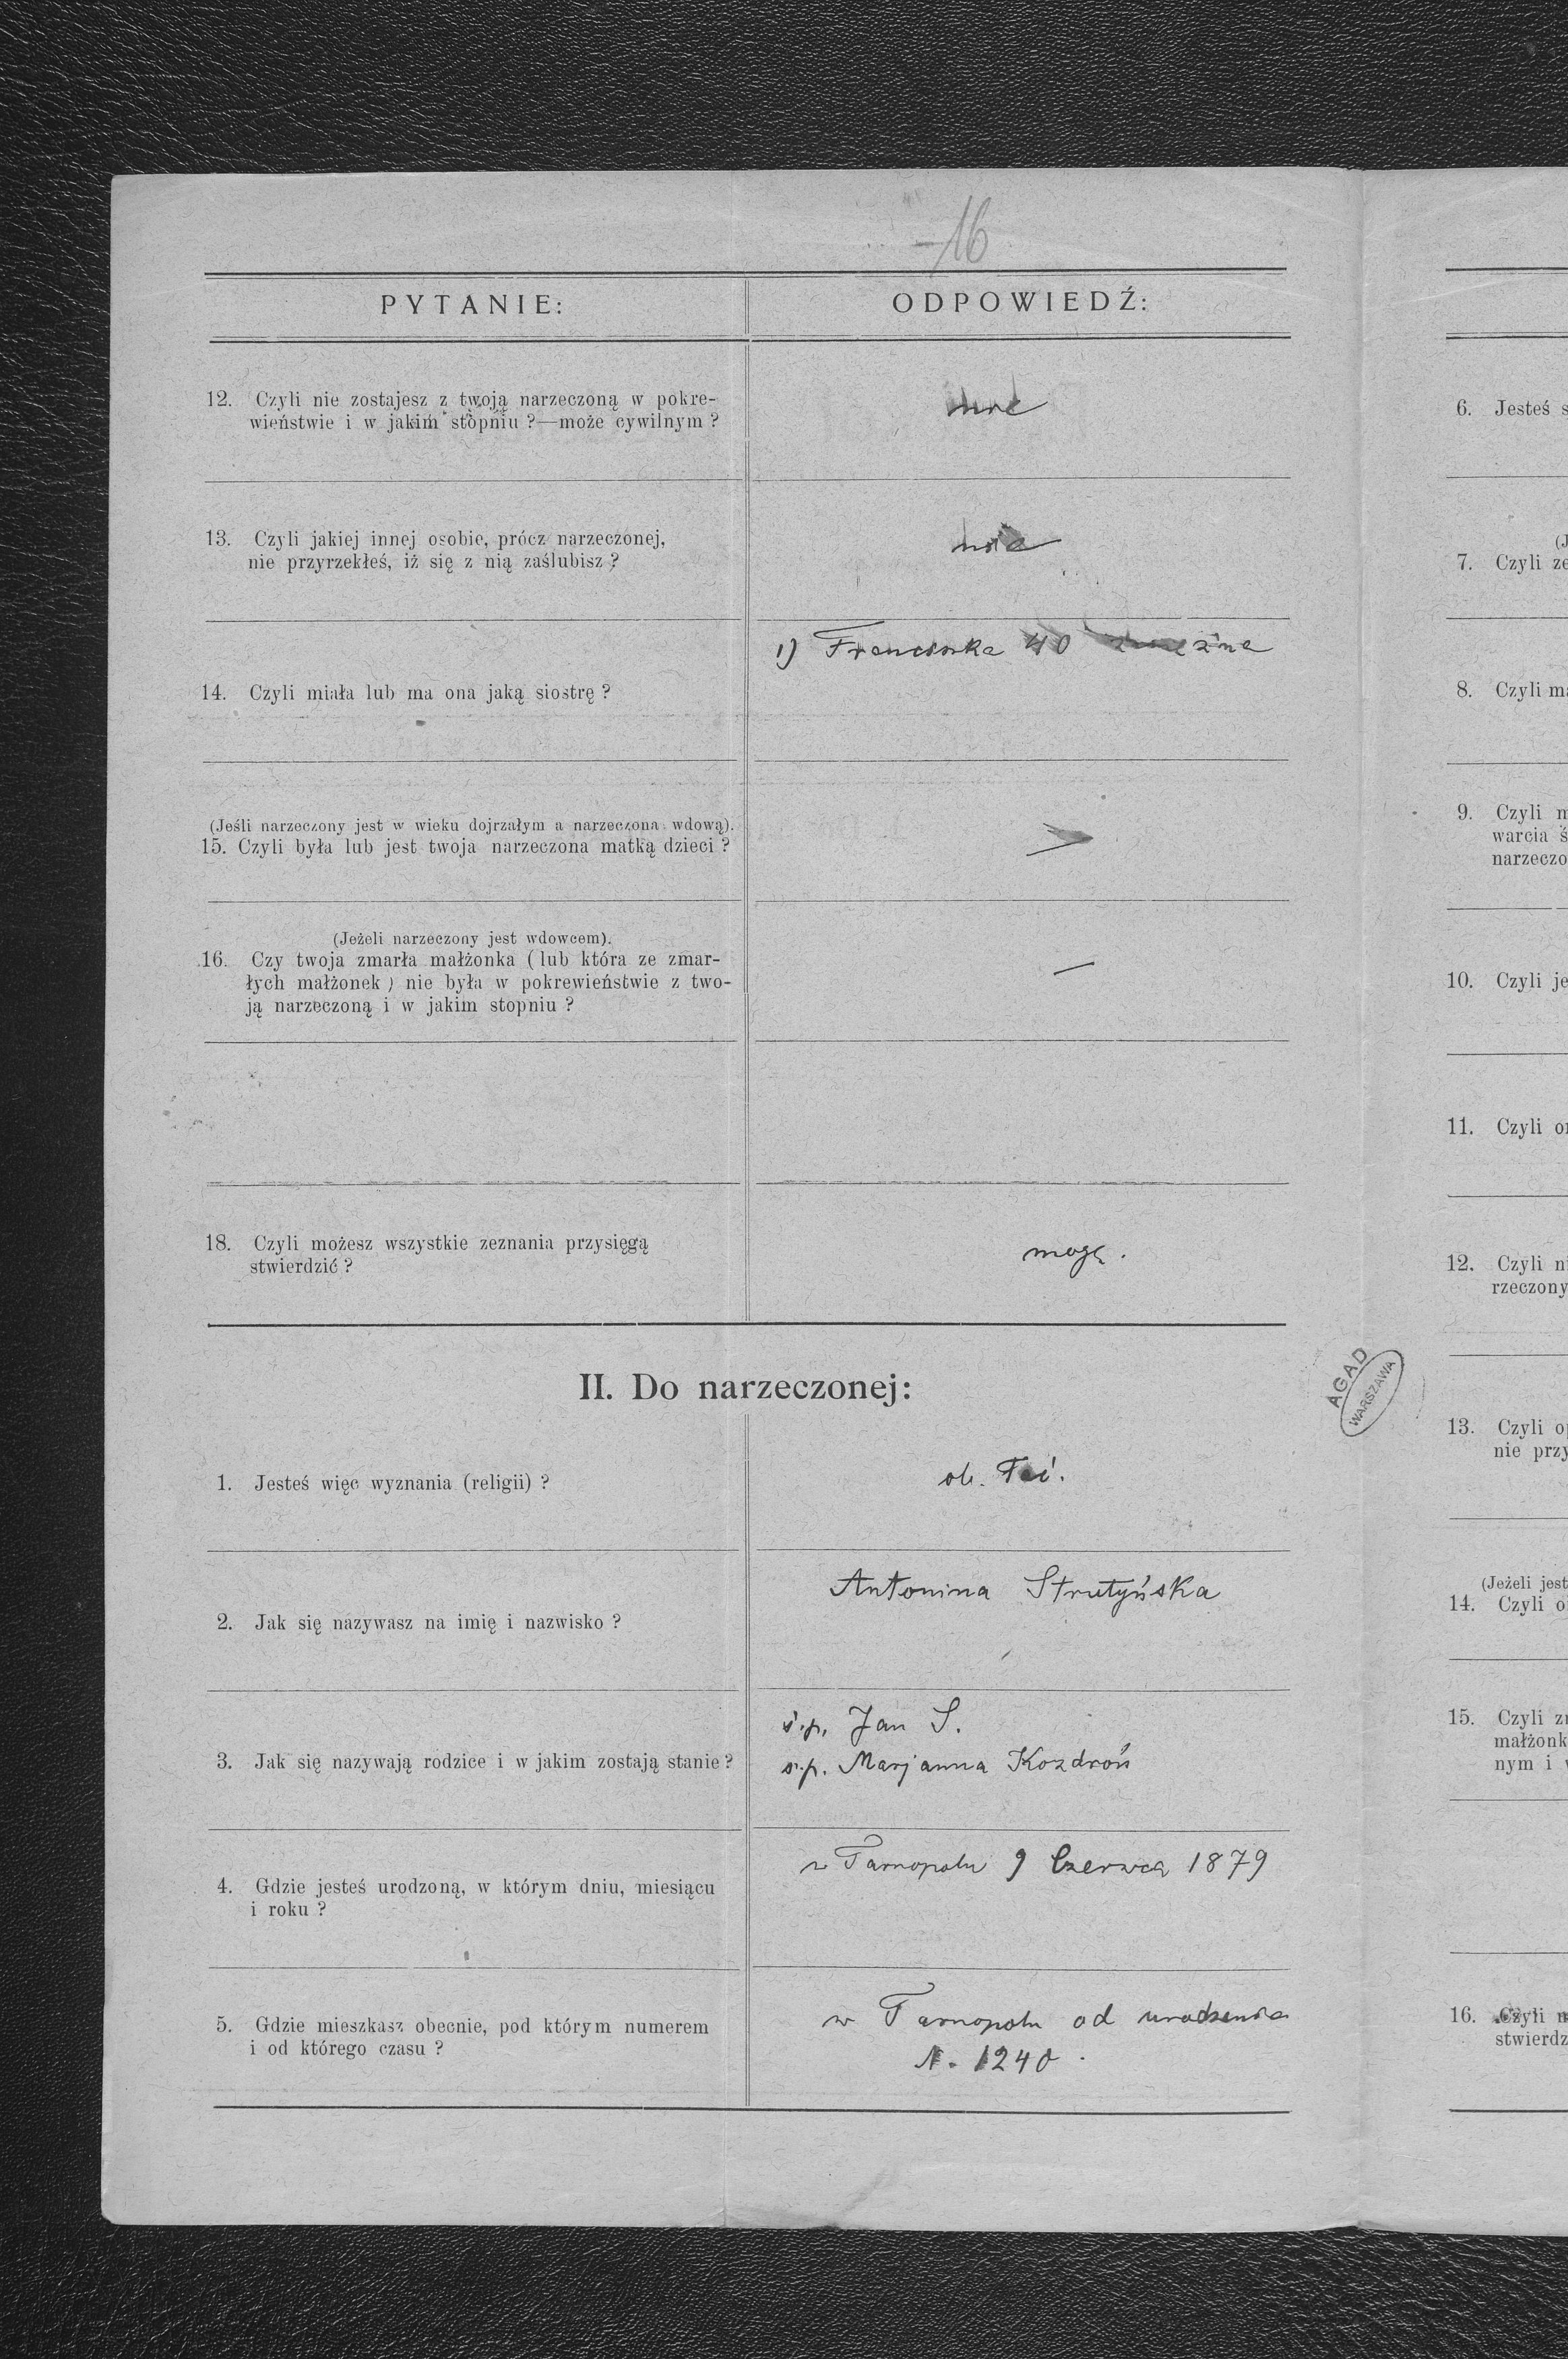 16
PYTANIE:
ODPOWIEDŹ:
12. Czyli nie zostajesz z twoją narzeczoną w pokre-
wieństwie i w jakim stopniu ?—może cywilnym ?
nie
13. Czyli jakiej innej osobie, prócz narzeczonej,
nie przyrzekłeś, iż się z nią zaślubisz ?
nie
14. Czyli miała lub ma ona jaką siostrę ?
1) Franciszka 40
(Jeśli narzeczony jest w wieku dojrzałym a narzeczona wdową).
15. Czyli była lub jest twoja narzeczona matką dzieci ?
(Jeżeli narzeczony jest wdowcem).
16. Czy twoja zmarła małżonka ( lub która ze zmar-
łych małżonek ) nie była w pokrewieństwie z two-
ją narzeczoną i w jakim stopniu ?
—
18. Czyli możesz wszystkie zeznania przysięgą
stwierdzić ?
mogę .
II. Do narzeczonej:
1. Jesteś więc wyznania (religii) ?
2. Jak się nazywasz na imię i nazwisko ?
Antonina Strutyńska
3. Jak się nazywają rodzice i w jakim zostają stanie ?
ś.p. Jan S.
ś.p. Marjanna Kozdroń
4. Gdzie jesteś urodzoną, w którym dniu, miesiącu
i roku ?
w Tarnopolu 9 Czerwca 1879
5. Gdzie mieszkasz obecnie, pod którym numerem
i od którego czasu ?
w Tarnopolu od urodzenia
N. 1240
AGAD
WARSZAWA
6. Jesteś s
(J
7. Czyli ze
8. Czyli ma
9. Czyli m
warcia ś
narzeczo
10. Czyli je
11. Czyli on
12. Czyli ni
rzeczony
13. Czyli op
nie przy
(Jeżeli jest
14. Czyli o
15. Czyli zn
małżonk
nym i w
16. Czyli m
stwierdz